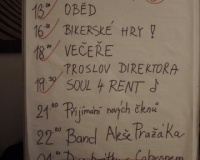 13:00 OBĚD
16:00 BIKERSKÉ HRY!
18:00 VEČEŘE
PROSLOV DIREKTORA
19:30 SOUL 4 RENT ♪
21:00 Přijímání nových členů
22:00 Band Aleše Pražáka